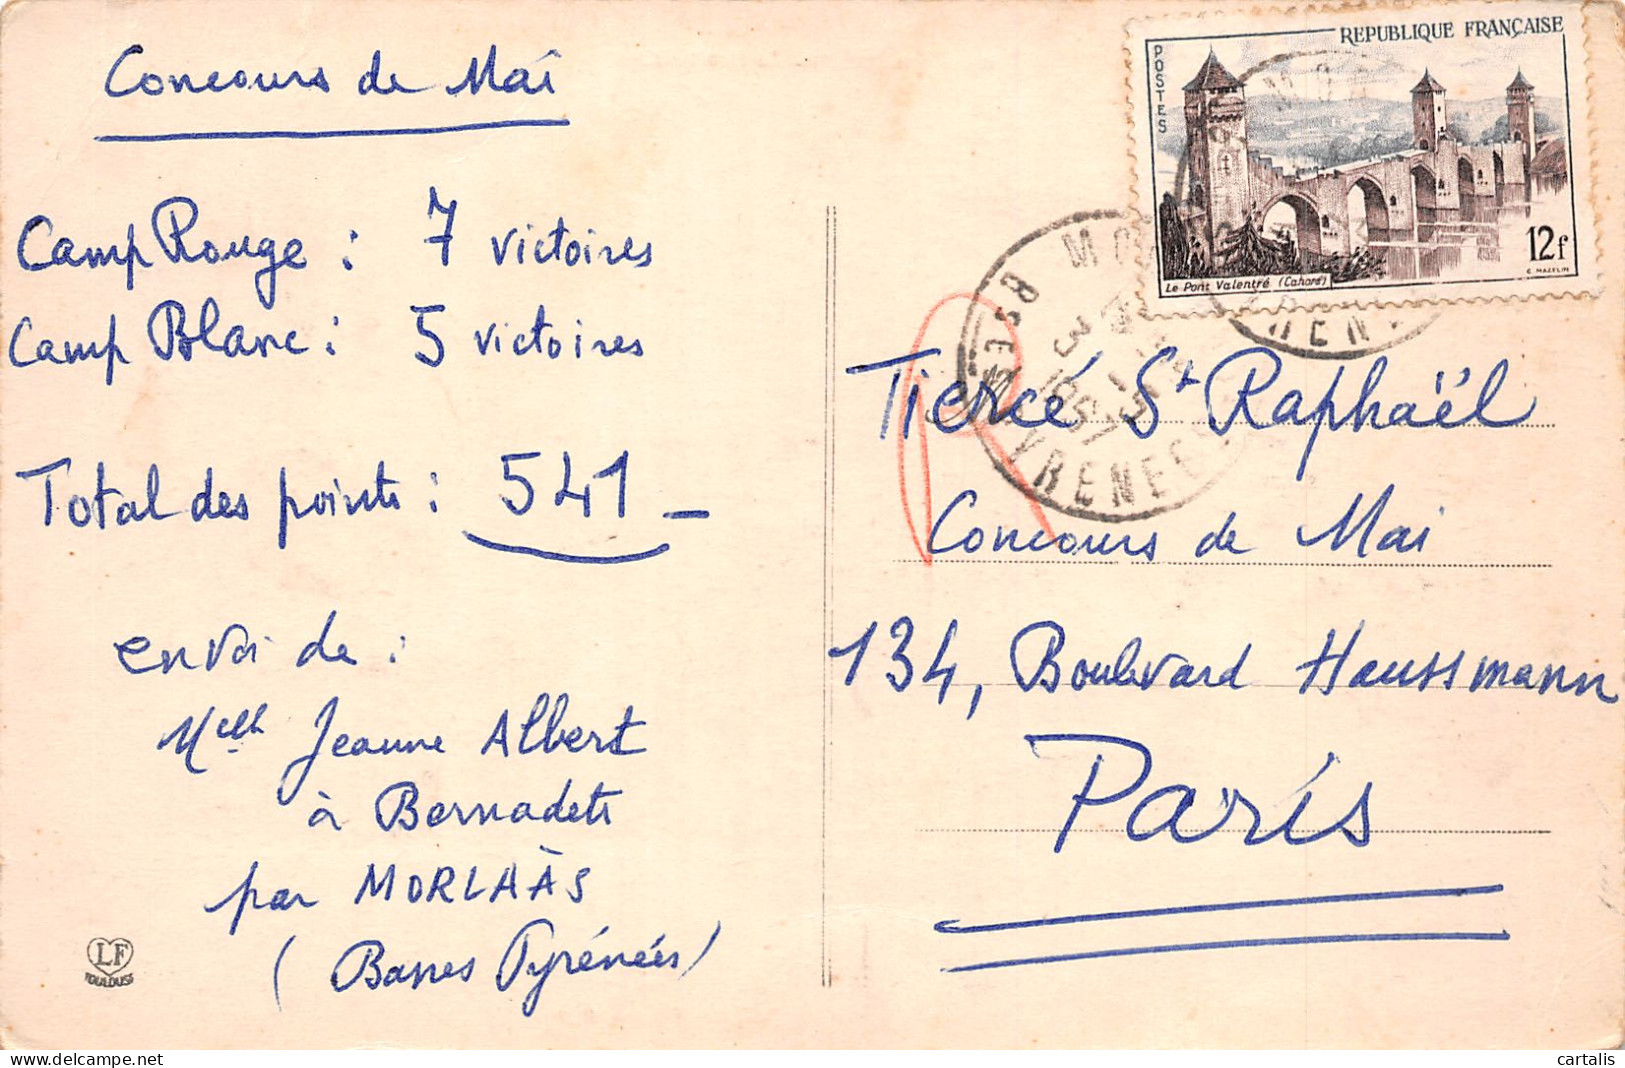 Concours de Mai
Camp Rouge : 7 victoires
Camp Blanc : 5 victoires
Total des points : 541
envoi de :
Melle Jeanne Albert
à Bernadets
par MORLAÀS
(Basses Pyrénées)
LF
TOULOUSE
REPUBLIQUE FRANÇAISE
POSTES
12f
Le Pont Valentré (Cahors)
C. MAZELIN
Tiercé St Raphaël
Concours de Mai
134, Boulevard Haussmann
Paris
cartalis